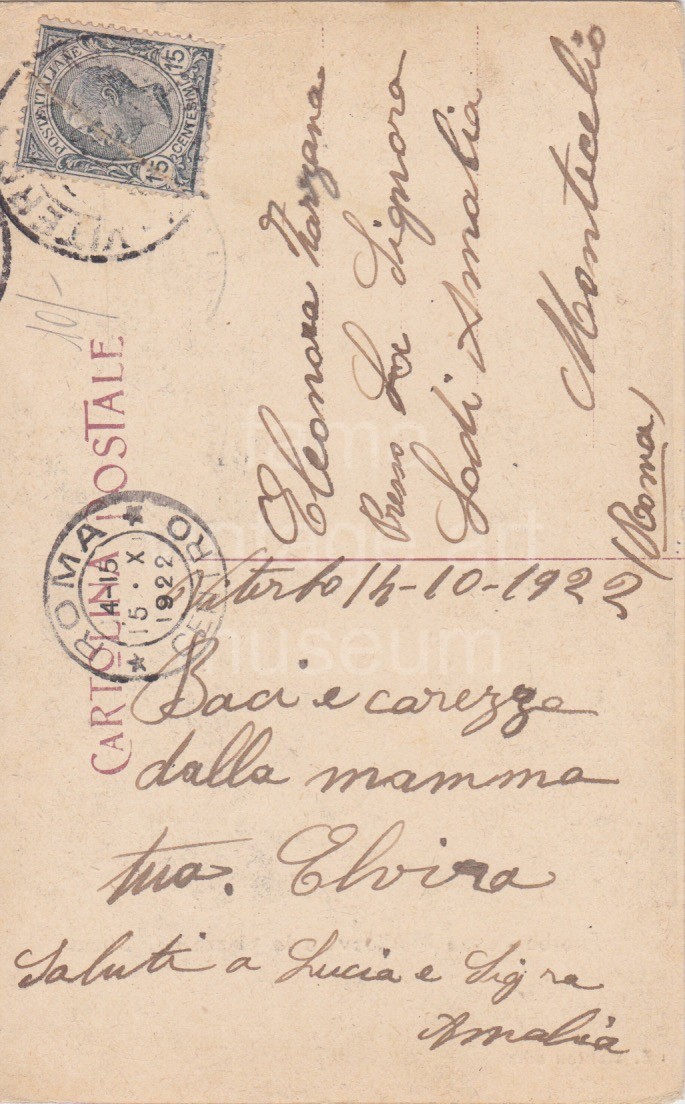 POSTE ITALIANE
15 CENTESIMI 15
VITERBO
10/-
CARTOLINA POSTALE
ROMA CENTRO
4-15
15 · X
1922
Eleonora
Presso La Signora
Lodi Amalia
Montecelio
(Roma)
Viterbo 14-10-1922
Baci e carezze
dalla mamma
tua. Elvira
Saluti a Lucia e Sigra
Amalia
fama
vintage art
museum